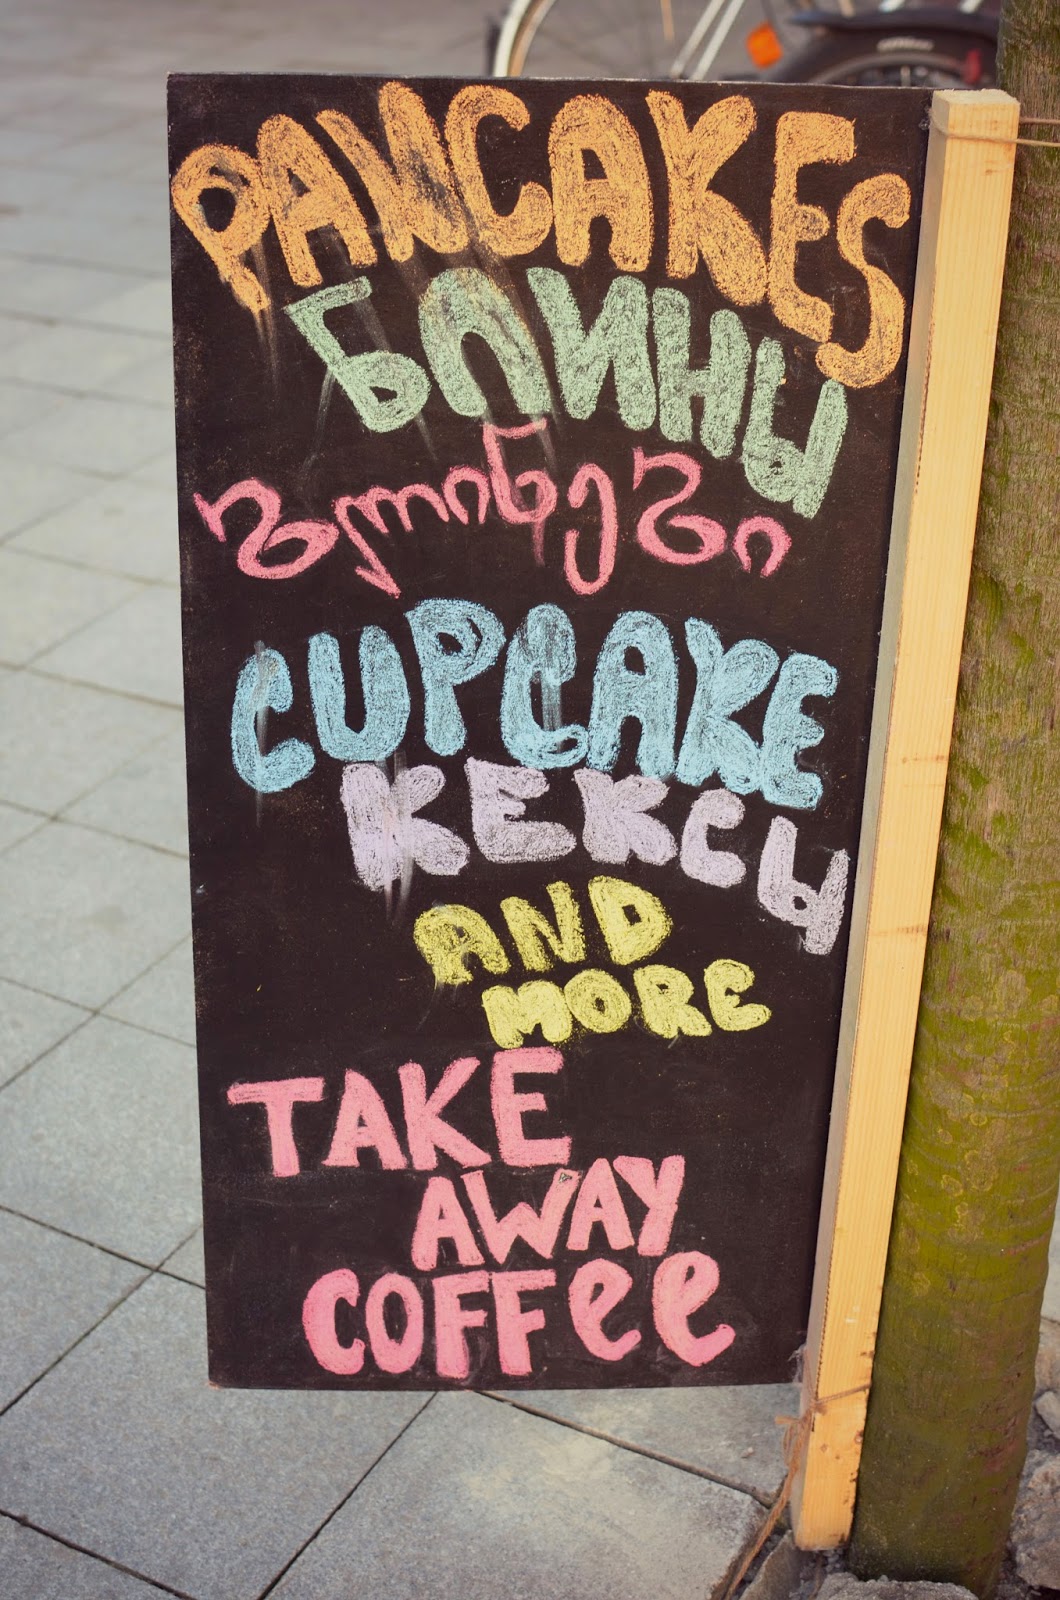 PANCAKES
БЛИНЫ
ბლინები
CUPCAKE
КЕКСЫ
AND
MORE
TAKE
AWAY
COFFee